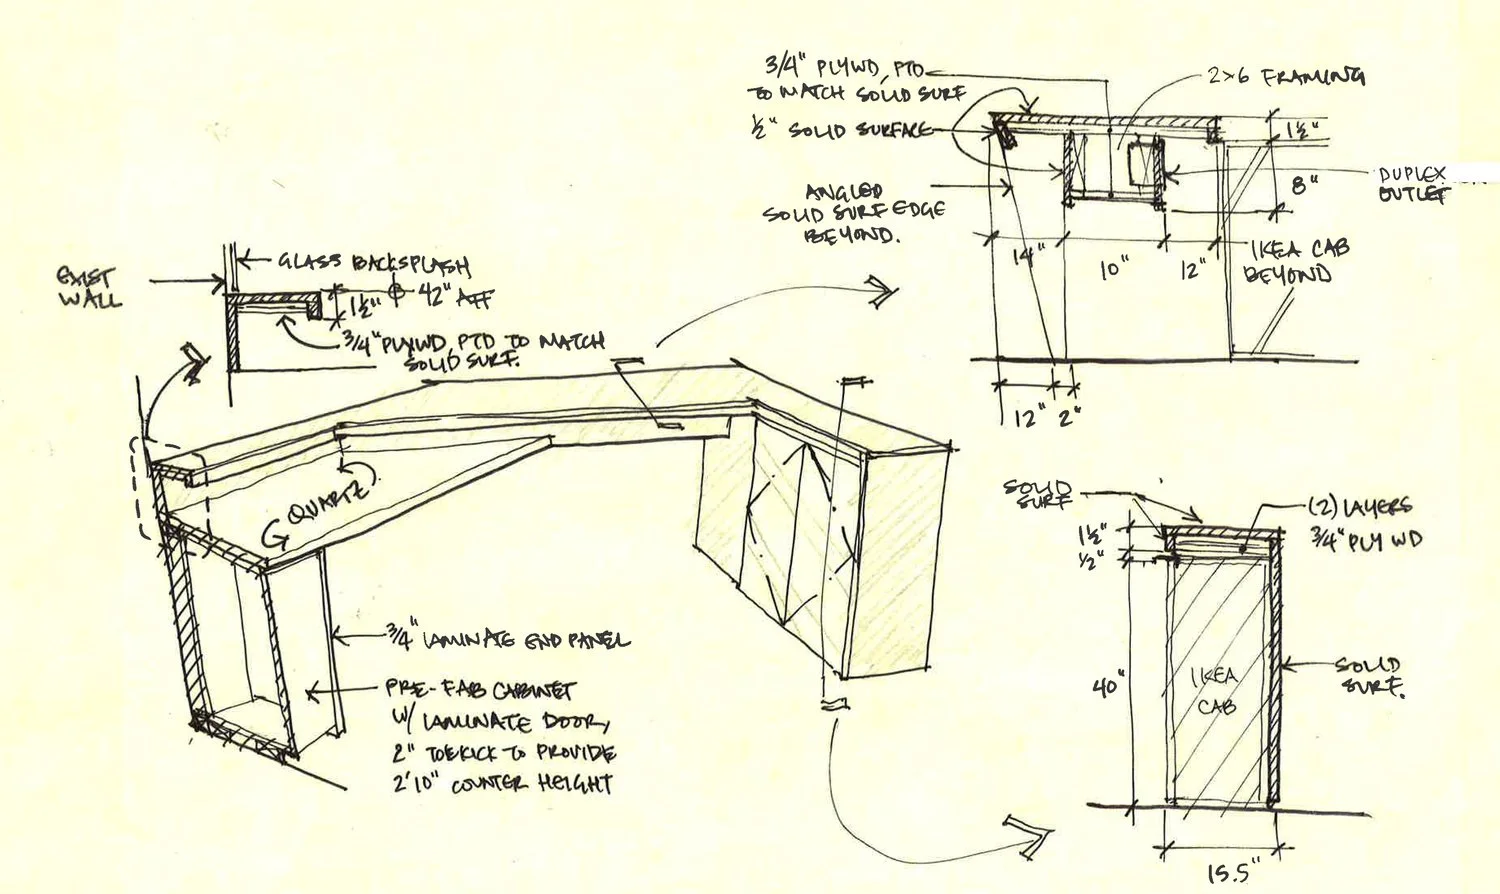 3/4" PLYWD, PTD
TO MATCH SOLID SURF
1/2" SOLID SURFACE
ANGLED
SOLID SURF EDGE
BEYOND.
2x6 FRAMING
1 1/2"
8"
DUPLEX
OUTLET
14"
10"
12"
IKEA CAB
BEYOND
12"
2"
EXIST
WALL
GLASS BACKSPLASH
1 1/2"
42" AFF
3/4" PLYWD, PTD TO MATCH
SOLID SURF.
QUARTZ
3/4" LAMINATE END PANEL
PRE-FAB CABINET
W/ LAMINATE DOOR,
2" TOEKICK TO PROVIDE
2'10" COUNTER HEIGHT
SOLID
SURF
(2) LAYERS
3/4" PLYWD
1 1/2"
1/2"
40"
IKEA
CAB
SOLID
SURF.
15.5"